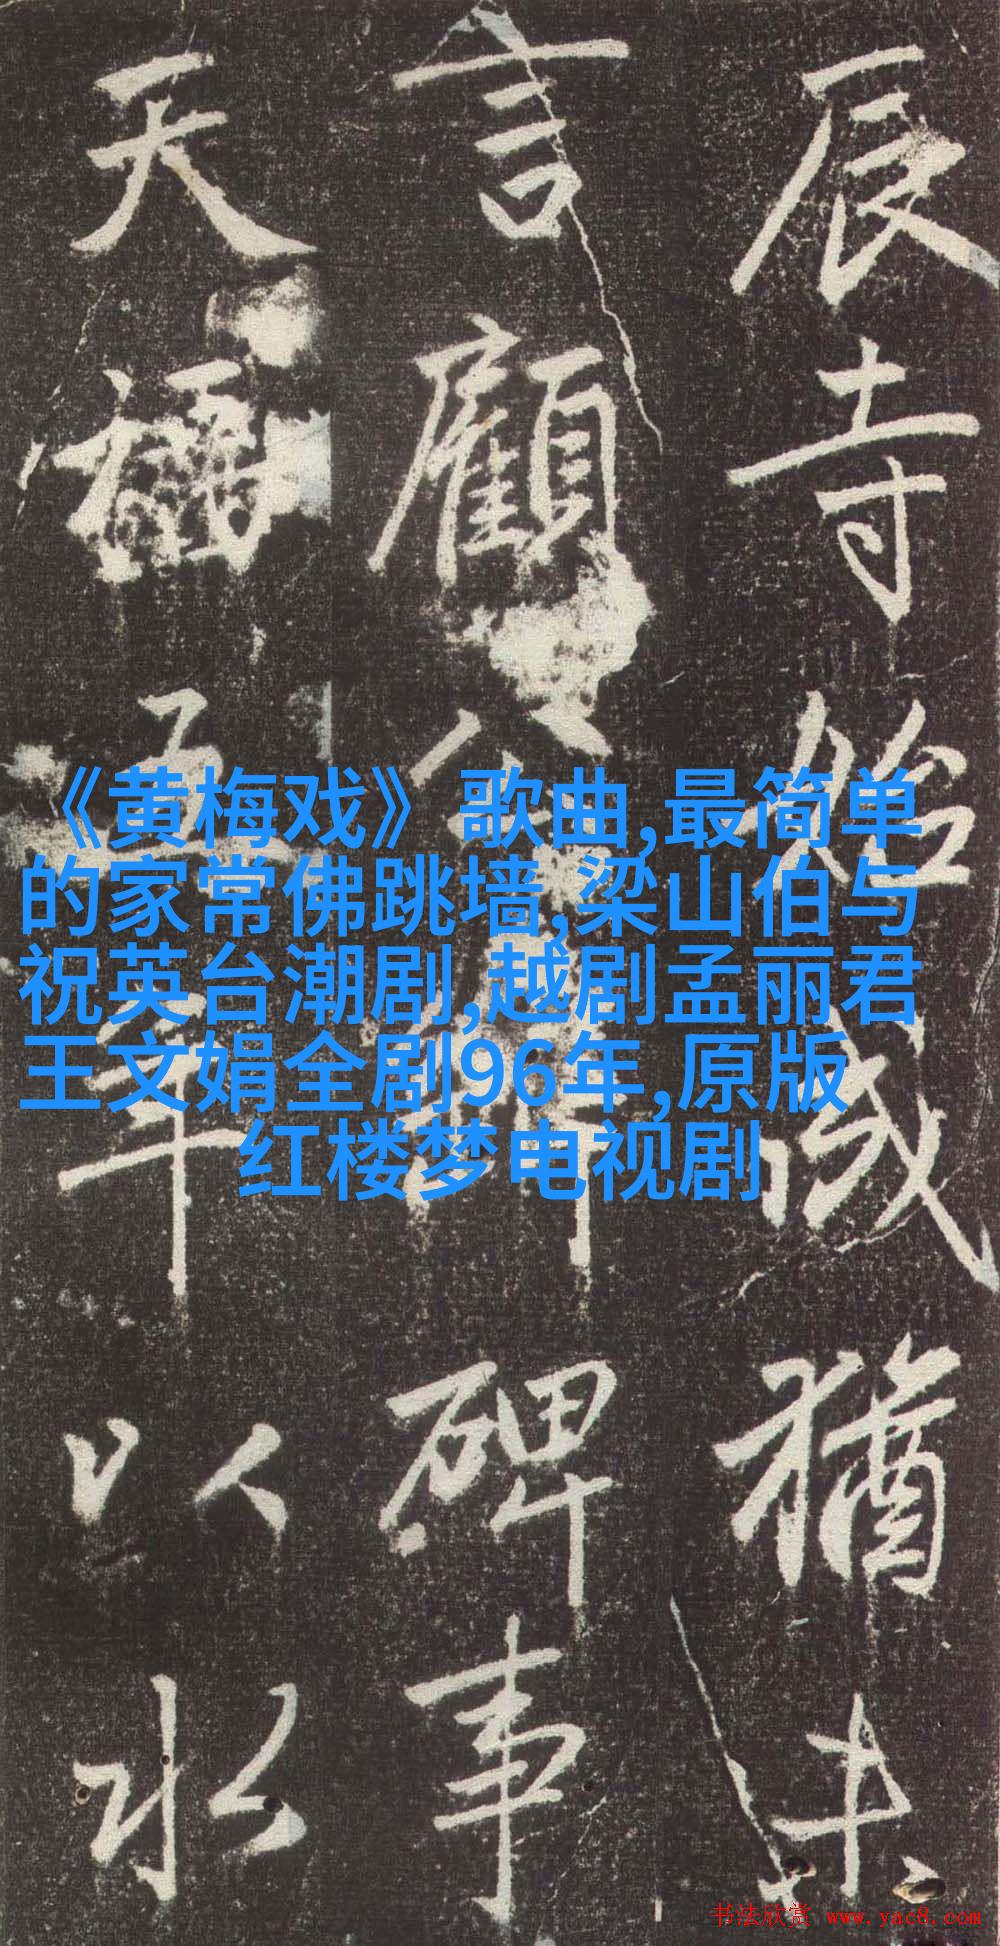 辰寺始咸猶未
言顧八
碑事
天福五年以水
《黄梅戏》歌曲,最简单
的家常佛跳墙,梁山伯与
祝英台潮剧,越剧孟丽君
王文娟全剧96年,原版
红楼梦电视剧
书法欣赏 www.yac8.com